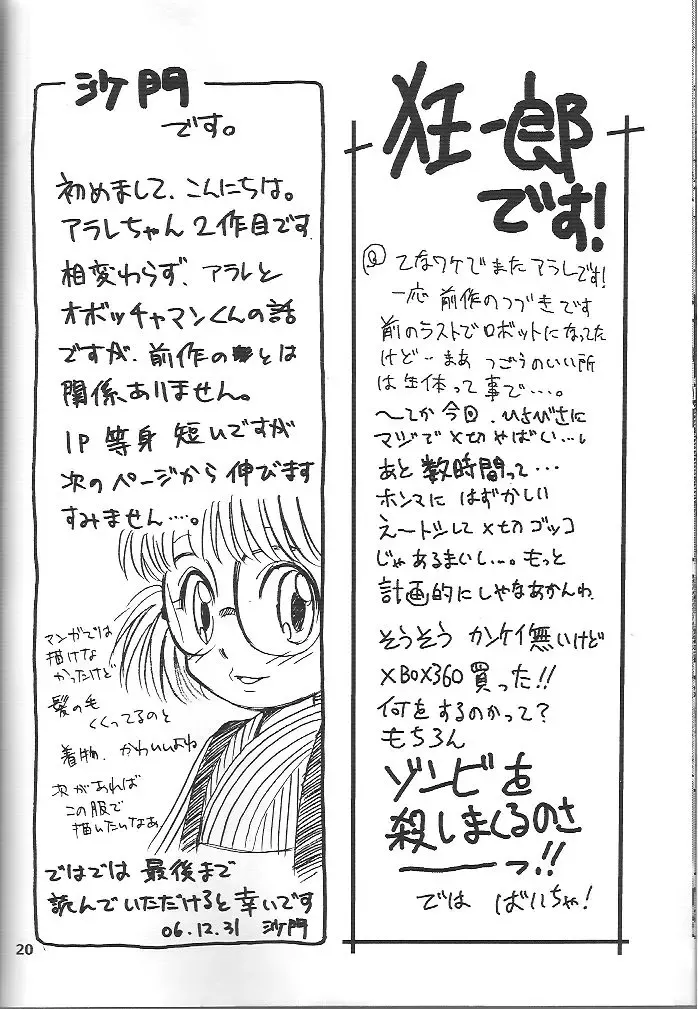 沙門
です。
初めまして、こんにちは。
アラレちゃん2作目です
相変わらず、アラレと
オボッチャマンくんの話
ですが、前作のとは
関係ありません。
1P 等身 短いですが
次のページから 伸びます
すみません…。
マンガでは
描けな
かったけど
髪の毛
くくってるのと
着物、かわいいよね
次があれば
この服で
描いたいなあ
ではでは 最後まで
読んでいただけると幸いです
06.12.31 沙門
20
狂一郎
です!
てなワケでまたアラレです!
一応 前作のつづきです
前のラストでロボットになってた
けど…まあ つごうのいい所
は生体って事で…。
〜てか今回、ひさびさに
マジで〆切やばい…。
あと 数時間って…
ホンマに はずかしい
え〜トシして〆切ゴッコ
じゃあるまいし…。もっと
計画的にしゃなあかんわ
そうそう カンケイ無いけど
XBOX360 買った!!
何をするのかって?
もちろん
ゾンビを
殺しまくるのさ
――っ!!
では ばいちゃ!